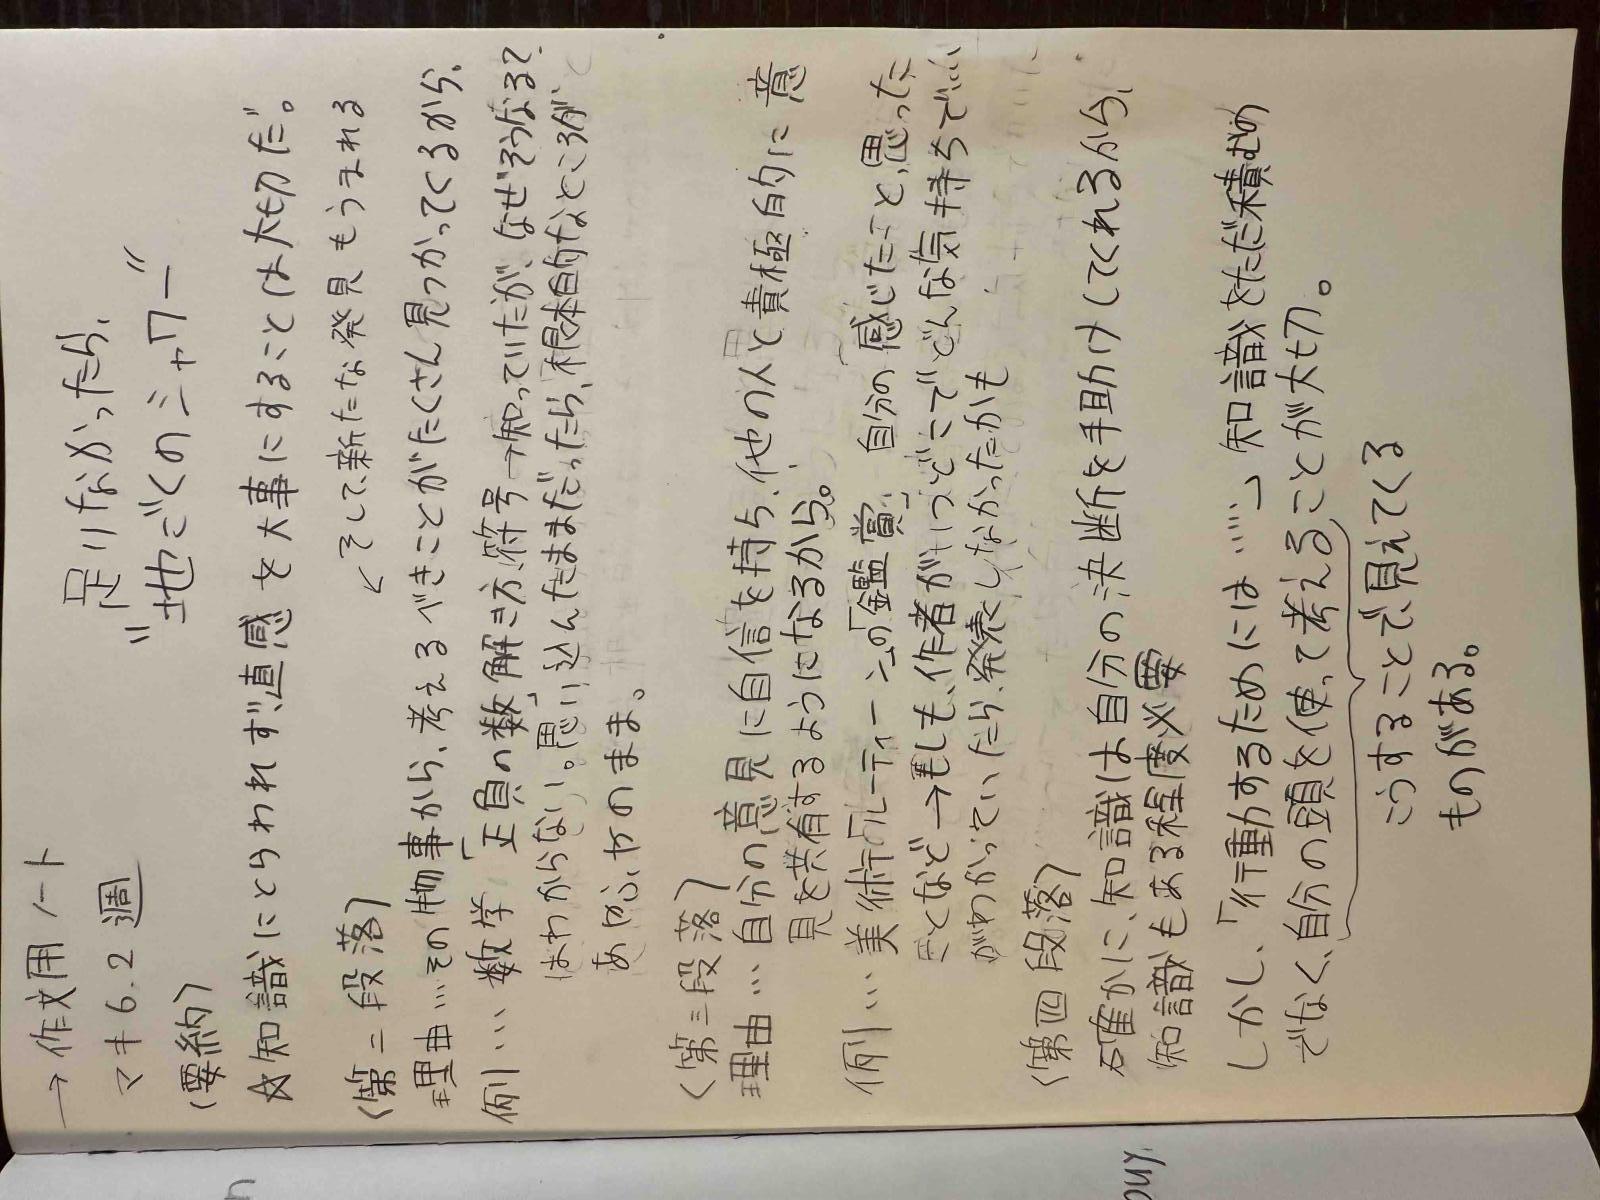 →作文用ノート
マキ6.2週
足りなかったら、
"地ごくのシャワー"
(要約)
☆知識にとらわれず、直感を大事にすることは大切だ。
↙そして、新たな発見もうまれる
〈第二段落〉
理由…その物事から、考えるべきことがたくさん見つかってくるから、
例…数学「正負の数」解き方、符号→知っていたが、なぜそうなる?
はわからない。思い込んだままだったら、根本的なところが
あやふやのまま。
〈第三段落〉
理由…自分の意見に自信を持ち、他の人と責極的に意
見を共有するようになるから。
例…美術の「ルーティーン」の「鑑賞」、自分の感じたこと、思った
ことなど→もしも、作者がいつどこでどんな気持ちで…
がわかっていたら、発表しなかったかも
〈第四段落〉
確かに、知識は自分の決断を手助けしてくれるから、
知識もある程度必要
しかし、「行動するためには…」知識をただ積むの
でなく、自分の頭を使って考えることが大切。
こうすることで見えてくる
ものがある。